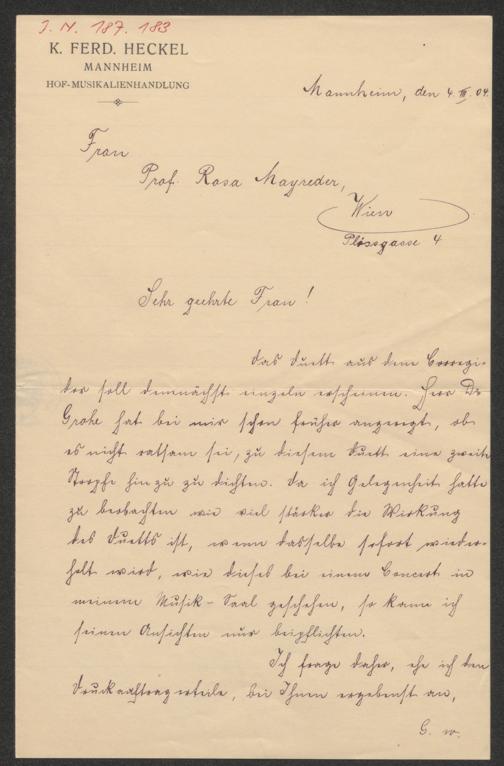 J. N. 187.183
K. FERD. HECKEL
MANNHEIM
HOF-MUSIKALIENHANDLUNG
Mannheim, den 4. III. 04.
Frau
Prof. Rosa Mayreder,
Wien
Plössgasse 4
Sehr geehrte Frau!
Das Duett aus dem Corregi-
dor soll demnächst einzeln erscheinen. Herr Dr
Grohe hat bei mir schon früher angeregt, ob
es nicht ratsam sei, zu diesem Duett eine zweite
Strophe hinzu zu dichten. Da ich Gelegenheit hatte
zu beobachten wie viel stärker die Wirkung
des Duetts ist, wenn dasselbe sofort wieder-
holt wird, wie dieses bei einem Concert in
meinem Musik-Saal geschehen, so kann ich
seinen Ansichten nur beipflichten.
Ich frage daher, ehe ich den
Druckauftrag erteile, bei Ihnen ergebenst an,